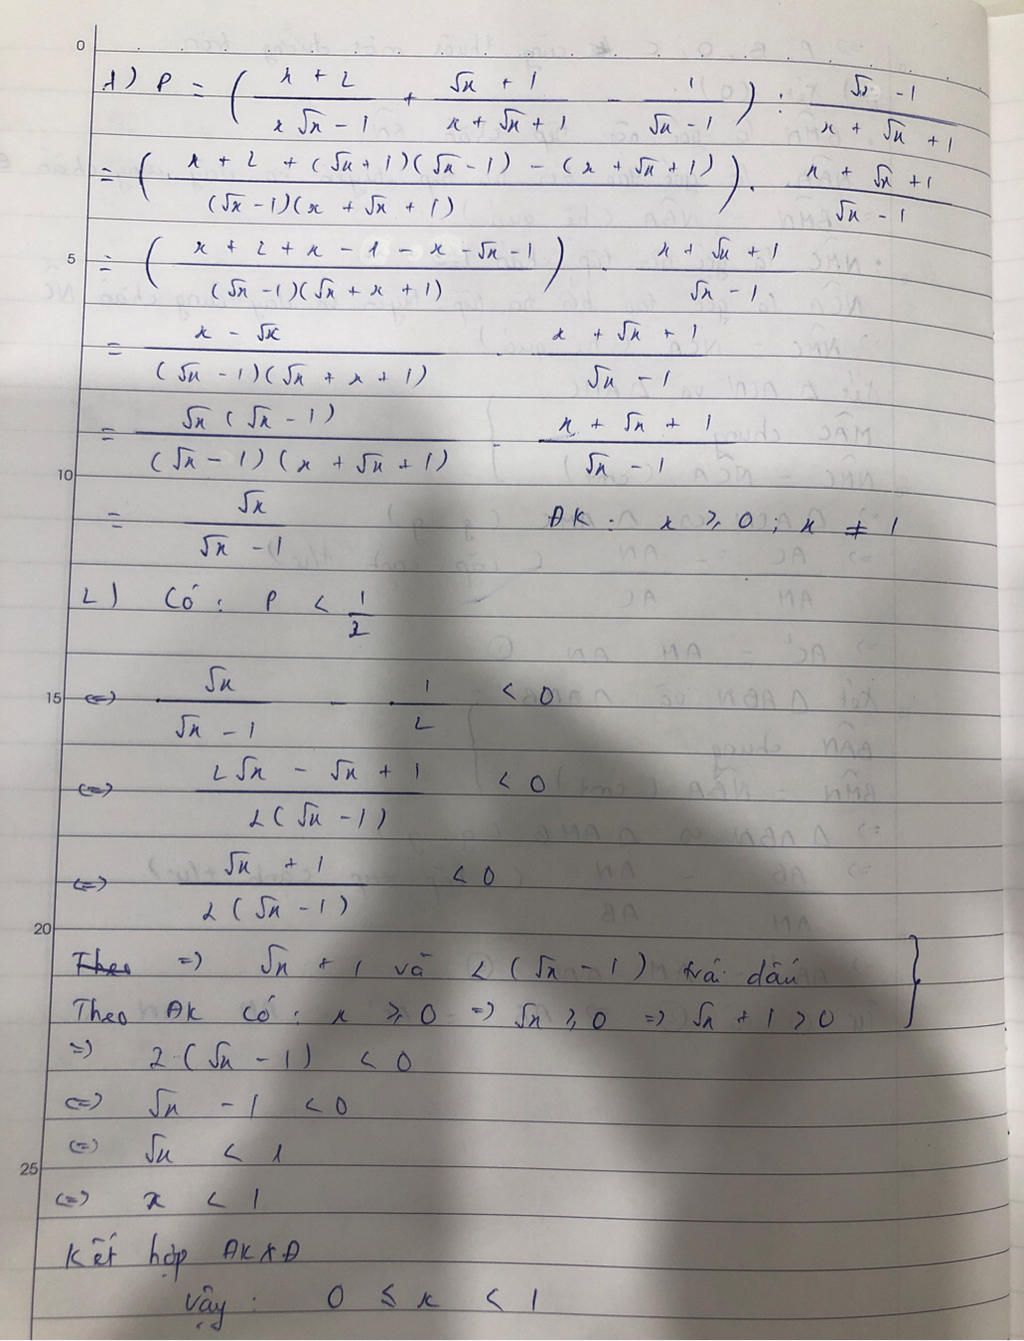 0
1) P = ( (x + 2)/(x√x - 1) + (√x + 1)/(x + √x + 1) - 1/(√x - 1) ) : (√x - 1)/(x + √x + 1)
= ( (x + 2 + (√x + 1)(√x - 1) - (x + √x + 1))/((√x - 1)(x + √x + 1)) ) . (x + √x + 1)/(√x - 1)
5 = ( (x + 2 + x - 1 - x - √x - 1)/((√x - 1)(√x + x + 1)) ) . (x + √x + 1)/(√x - 1)
= (x - √x)/((√x - 1)(√x + x + 1)) . (x + √x + 1)/(√x - 1)
= (√x (√x - 1))/((√x - 1)(x + √x + 1)) . (x + √x + 1)/(√x - 1)
10
= √x/(√x - 1) ĐK : x ⩾ 0 ; x ≠ 1
2) Có : P < 1/2
15 <=> √x/(√x - 1) - 1/2 < 0
<=> (2√x - √x + 1)/(2(√x - 1)) < 0
<=> (√x + 1)/(2(√x - 1)) < 0
20
=> √x + 1 và 2(√x - 1) trái dấu
Theo ĐK có : x ⩾ 0 => √x ⩾ 0 => √x + 1 > 0
=> 2.(√x - 1) < 0
<=> √x - 1 < 0
<=> √x < 1
25
<=> x < 1
Kết hợp ĐKXĐ
Vậy : 0 ≤ x < 1